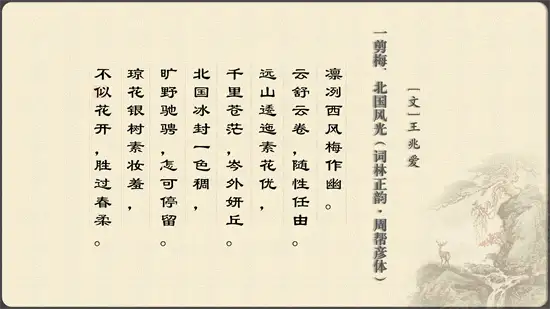 一剪梅·北国风光（词林正韵·周帮彦体）
［文］王兆爱
凛冽西风梅作幽。
云舒云卷，随性任由。
远山逶迤素花优，
千里苍茫，岑外妍丘。
北国冰封一色稠，
旷野驰骋，怎可停留。
琼花银树素妆羞，
不似花开，胜过春柔。